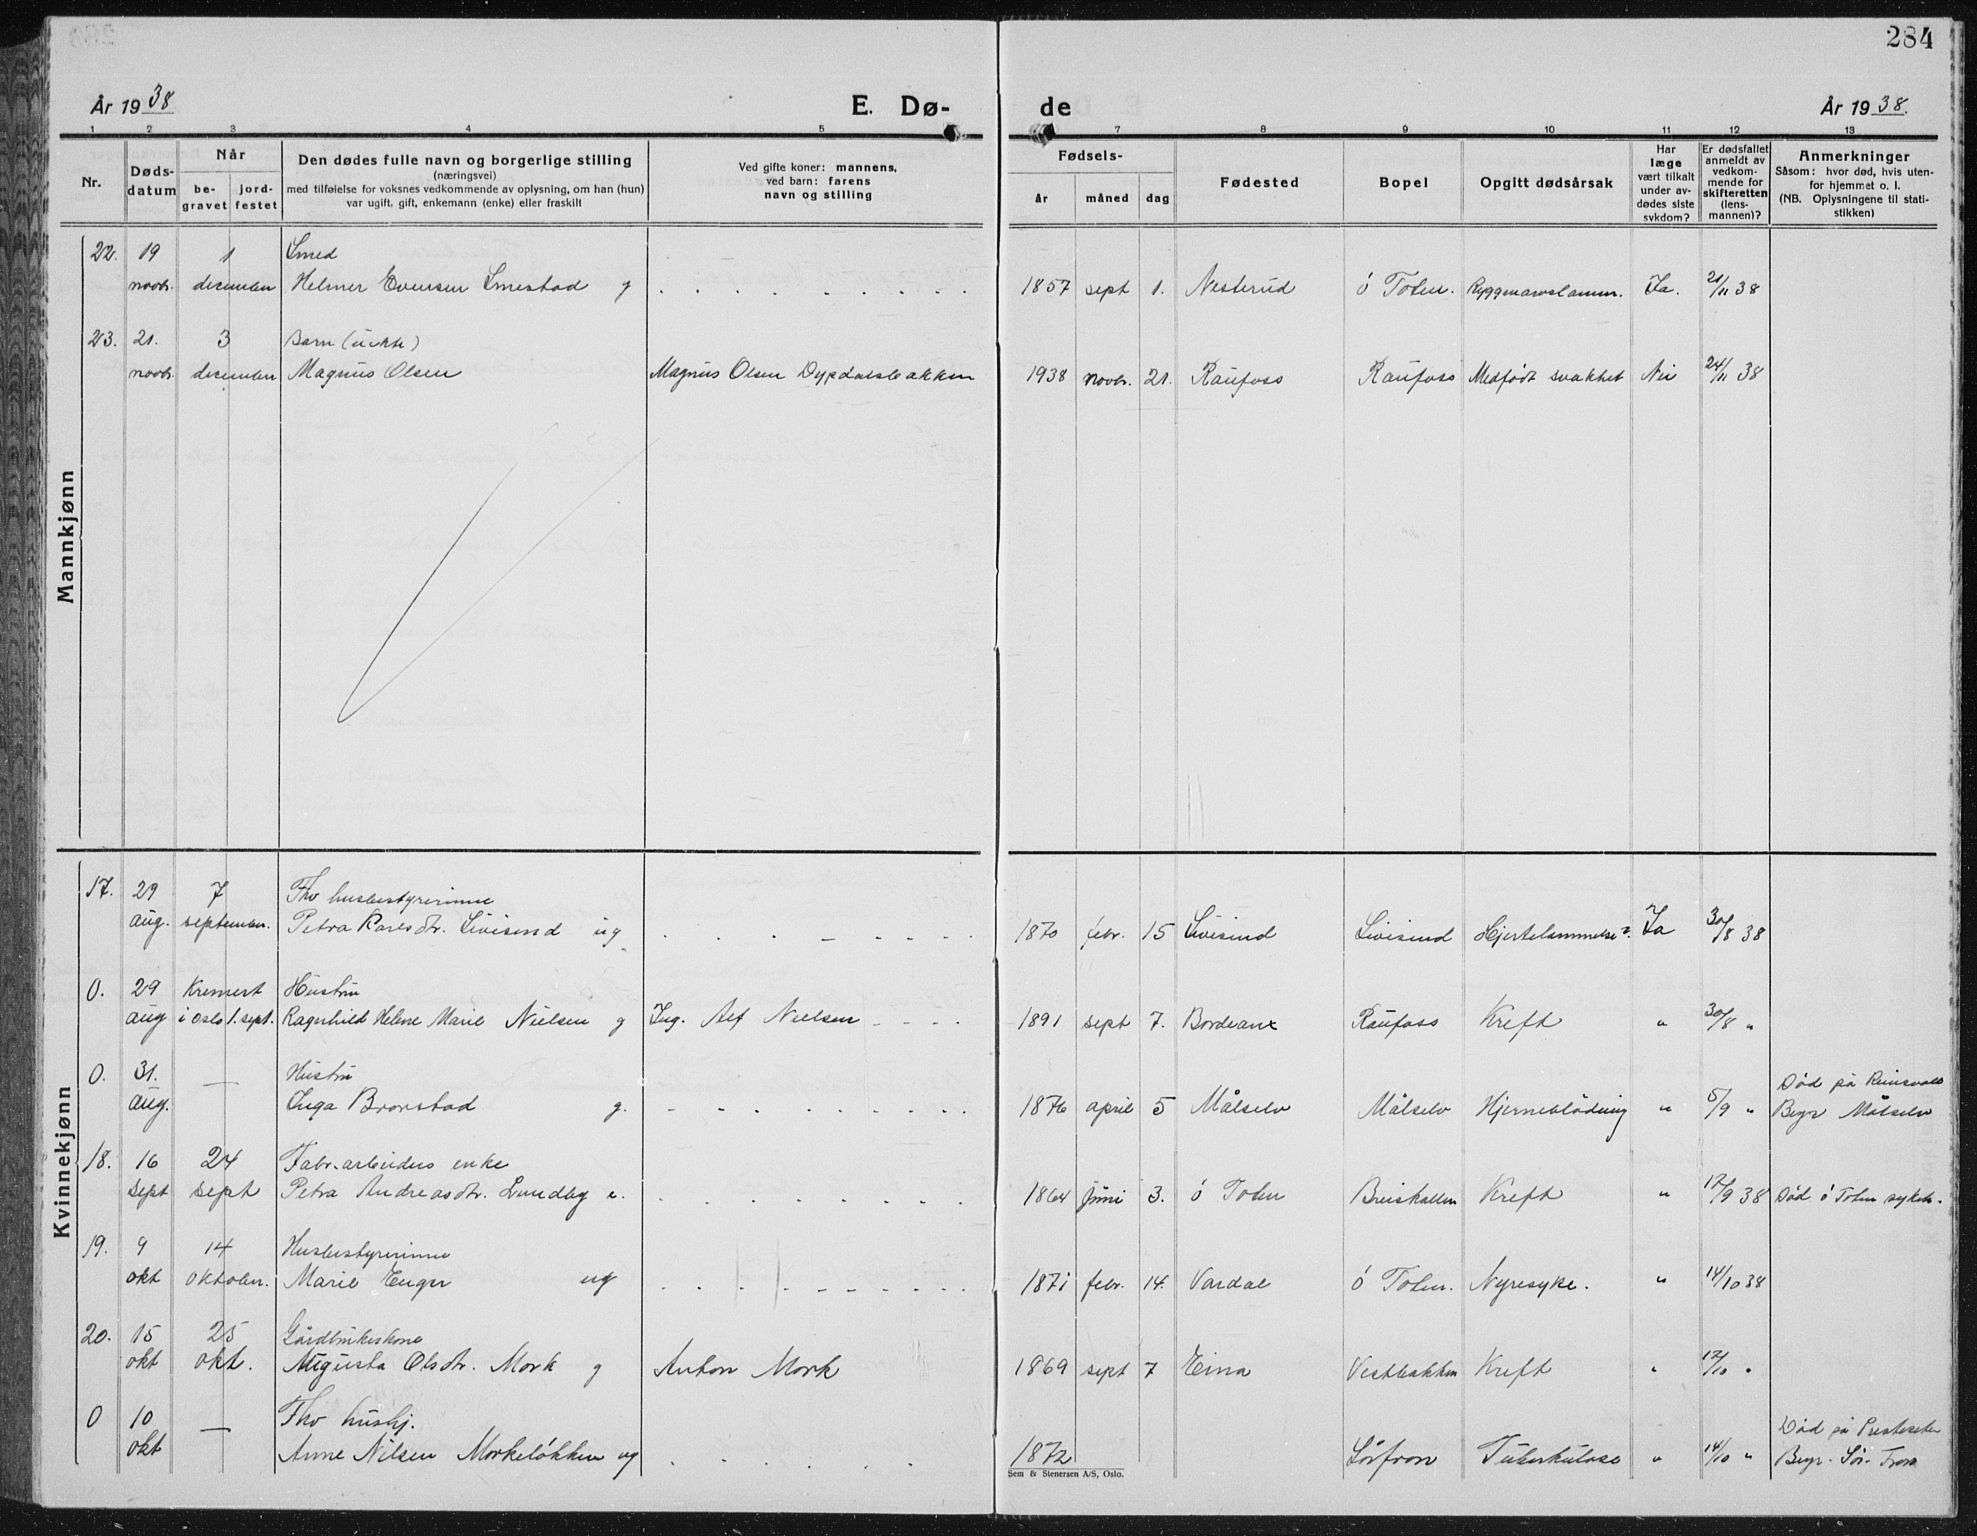 284
År 1938
E. Dø-
de
År 1938.
1 2 3 4 5 7 8 9 10 11 12 13
Nr.
Døds-
datum
Når
be-
gravet
jord-
festet
Den dødes fulle navn og borgerlige stilling
(næringsvei)
med tilføielse for voksnes vedkommende av oplysning, om han (hun)
var ugift, gift, enkemann (enke) eller fraskilt
Ved gifte koner: mannens,
ved barn: farens
navn og stilling
Fødsels-
år måned dag
Fødested
Bopel
Opgitt dødsårsak
Har
læge
vært tilkalt
under av-
dødes siste
sykdom?
Er dødsfallet
anmeldt av
vedkom-
mende for
skifteretten
(lens-
mannen)?
Anmerkninger
Såsom: hvor død, hvis uten-
for hjemmet o. l.
(NB. Oplysningene til stati-
stikken)
Mannkjønn
22. 19 1 Smed
novbr. desember Helmer Evensen Smestad g 1857 sept 1. Nesterud ö Toten. Ryggmarvslamm. Ja. 21/11 38
23. 21. 3 Barn (uekte)
novbr. desember Magnus Olsen Magnus Olsen Dypdalsbakken 1938 novbr. 21. Raufoss Raufoss Medfødt svakhet Nei 24/11 38
Kvinnekjønn
17. 29 7 Fhv husbestyrerinne
aug. september. Petra Karlsdtr. Sivesind ug 1870 febr. 15 Sivesind Sivesind Hjertelammelse? Ja 30/8 38
0. 29 Kremert Hustru
aug i Oslo 1. sept. Ragnhild Helene Marie Nielsen g Ing. Alf Nielsen 1891 sept 7. Bordeaux Raufoss Kreft " 30/8 "
0. 31. — Hustru Död på Reinsvoll
aug. Inga Brorstad g. 1876 april 5 Målselv Målselv Hjerneblödning " 5/9 " Begr Målselv
18. 16 24 Fabr.arbeiders enke
sept sept Petra Andreasdtr. Lundby e. 1864 juni 3. ö Toten Breiskallen Kreft " 17/9 38 Död ö Toten sykeh.
19. 9 14 Husbestyrerinne
okt oktober. Marie Enger ug 1871 febr. 14. Vardal ö Toten. Nyresyke. " 14/10 38
20. 15 25 Gårdbrukeskone
okt okt. Augusta Olsdtr. Mork g Anton Mork 1869 sept 7 Eina Vestbakken Kreft " 17/10 "
0 10 — Fhv hushj. Död på Presteseter
okt Anne Nilsen Morkeløkken ug 1872 Sörfron Tuberkulose " 14/10 " Begr. Sör-Fron
Sem & Stenersen A/S, Oslo.